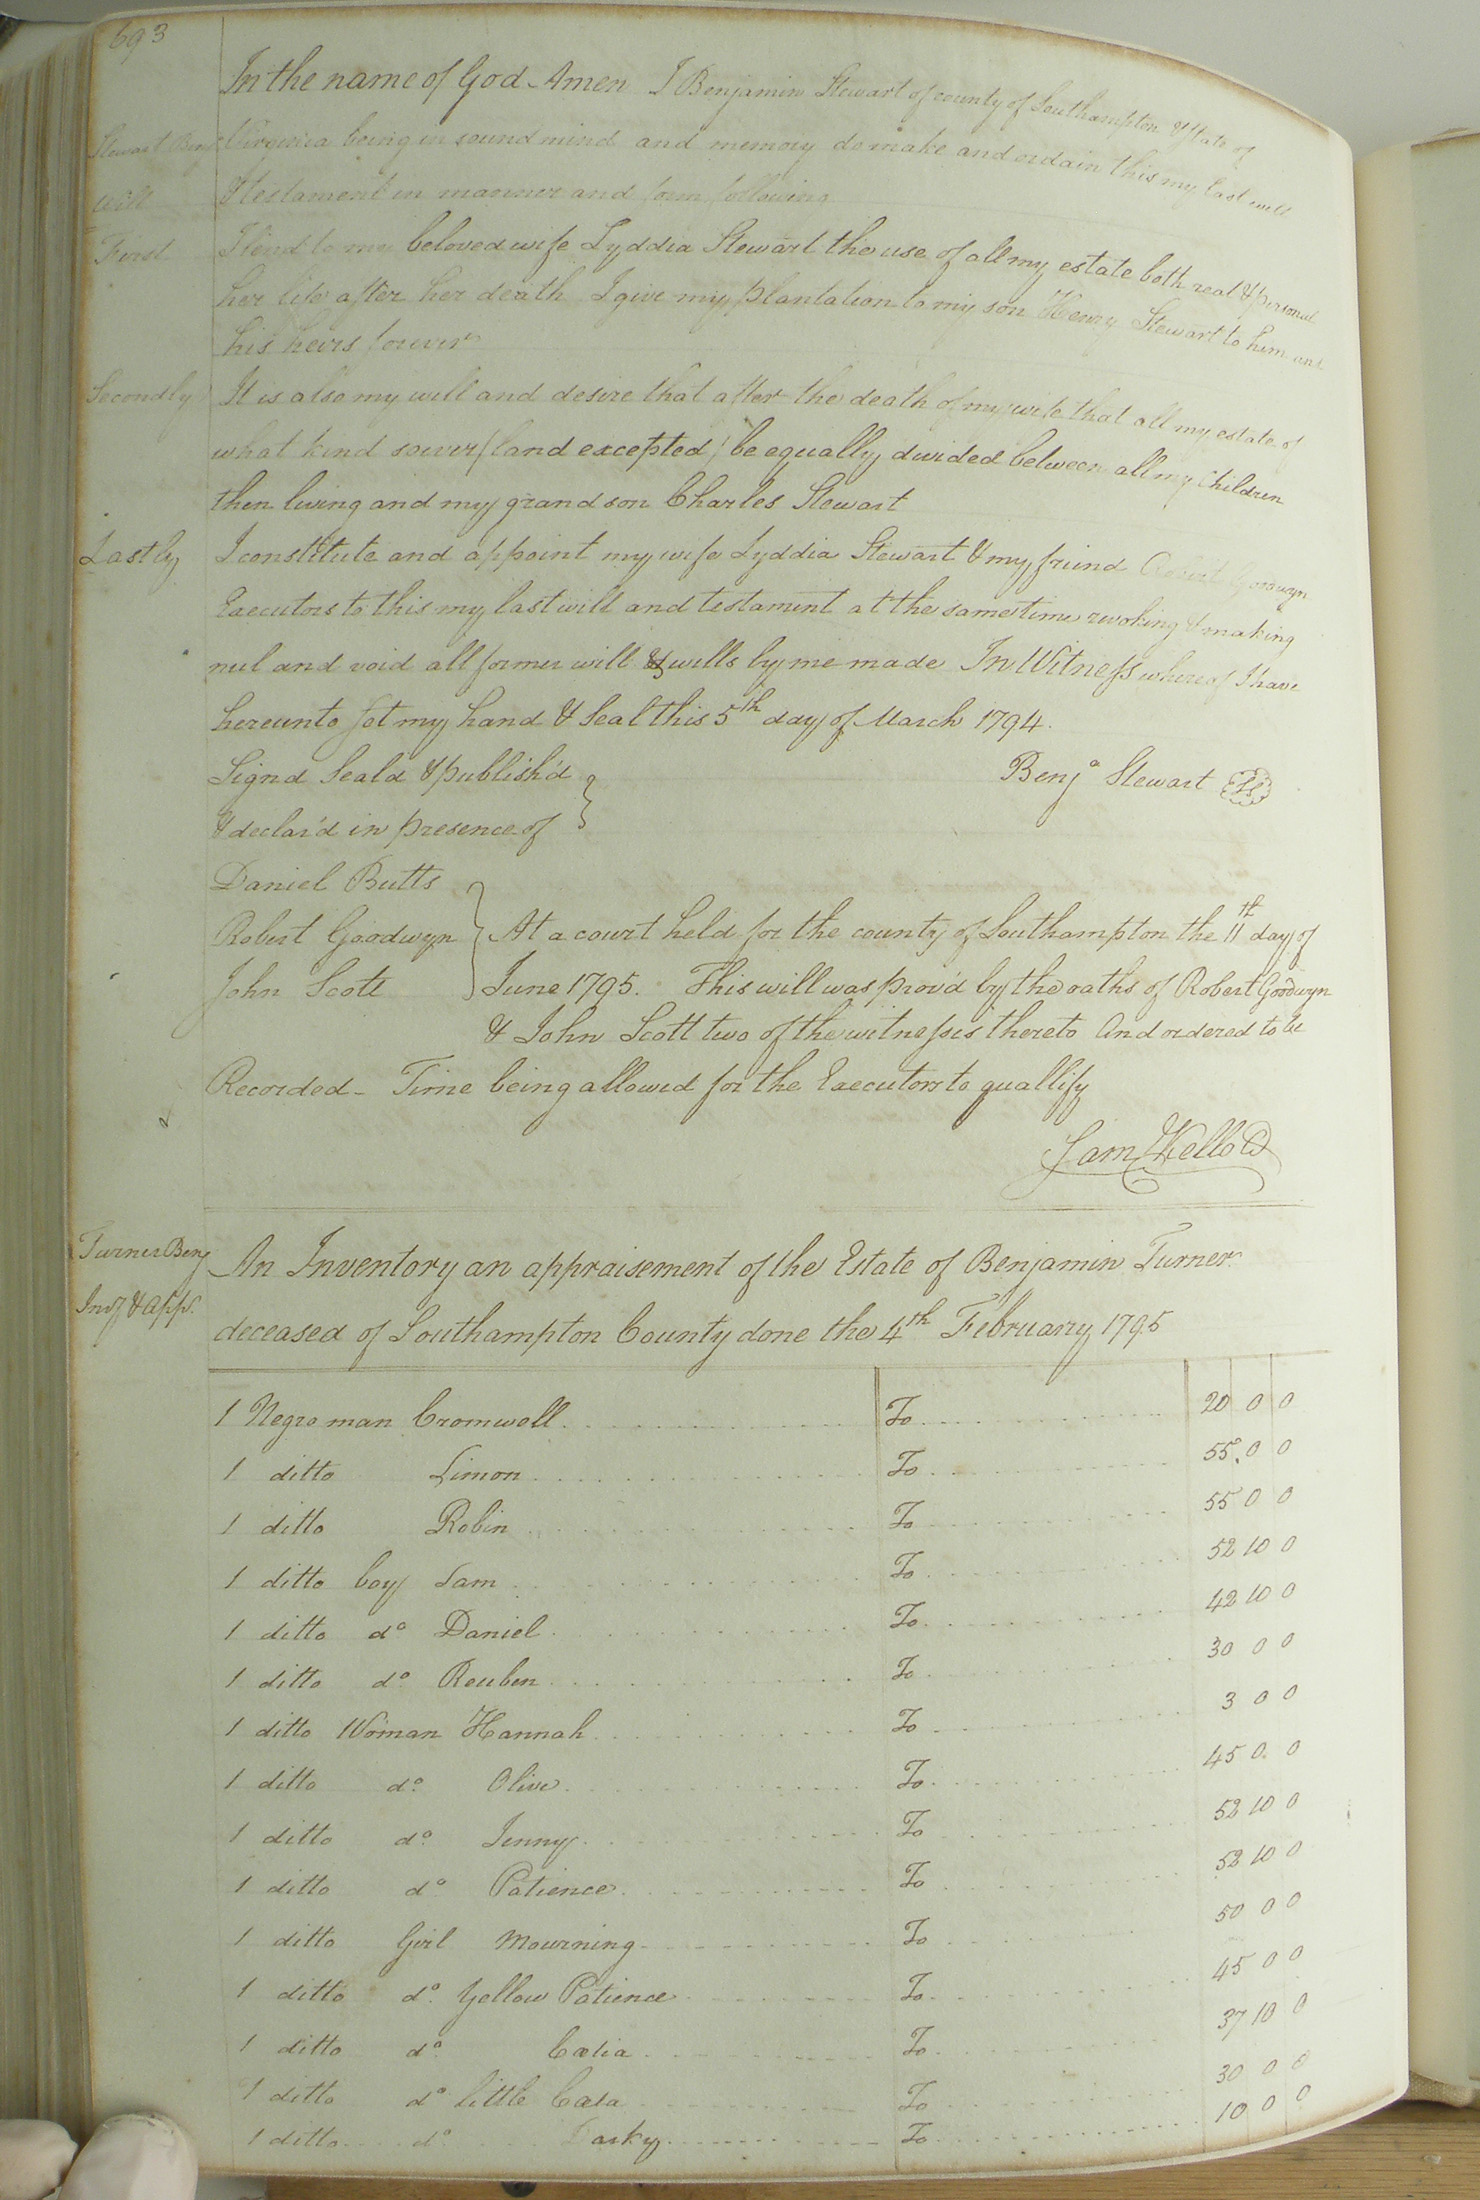 693
In the name of God Amen I Benjamin Stewart of county of Southampton & State of
Stewart Benj Virginia being in sound mind and memory do make and ordain this my last will
Will & testament in manner and form following
First I lend to my beloved wife Lyddia Stewart the use of all my estate both real & personal
her life after her death I give my plantation to my son Henry Stewart to him and
his heirs forever
Secondly It is also my will and desire that after the death of my wife that all my estate of
what kind soever (land excepted) be equally divided between all my Children
then living and my grand son Charles Stewart
Lastly I constitute and appoint my wife Lyddia Stewart & my friend Goodwyn
Executors to this my last will and testament at the same time revoking & making
nul and void all former will & wills by me made In Witness whereof I have
hereunto set my hand & Seal this 5th day of March 1794.
Signd Seal'd & publish'd Benja Stewart
& declar'd in presence of
Daniel Butts
Robert Goodwyn At a court held for the county of Southampton the 11th day of
John Scott June 1795. This will was prov'd by the oaths of Robert Goodwyn
& John Scott two of the witnesses thereto And ordered to be
Recorded - Time being allowed for the Executors to quallify
Sam Kello
Turner Benj An Inventory an appraisement of the Estate of Benjamin Turner
Invy & Apps. deceased of Southampton County done the 4th February 1795
1 Negro man Cromwell To 20 0 0
1 ditto Simon To 55 0 0
1 ditto Robin To 55 0 0
1 ditto boy Sam To 52 10 0
1 ditto do Daniel To 42 10 0
1 ditto do Reuben To 30 0 0
1 ditto Woman Hannah To 3 0 0
1 ditto do Olive To 45 0 0
1 ditto do Jenny To 52 10 0
1 ditto do Patience To 52 10 0
1 ditto Girl Mourning To 50 0 0
1 ditto do Yellow Patience To 45 0 0
1 ditto do Cælia To 37 10 0
1 ditto do little To 30 0 0
1 ditto do To 10 0 0